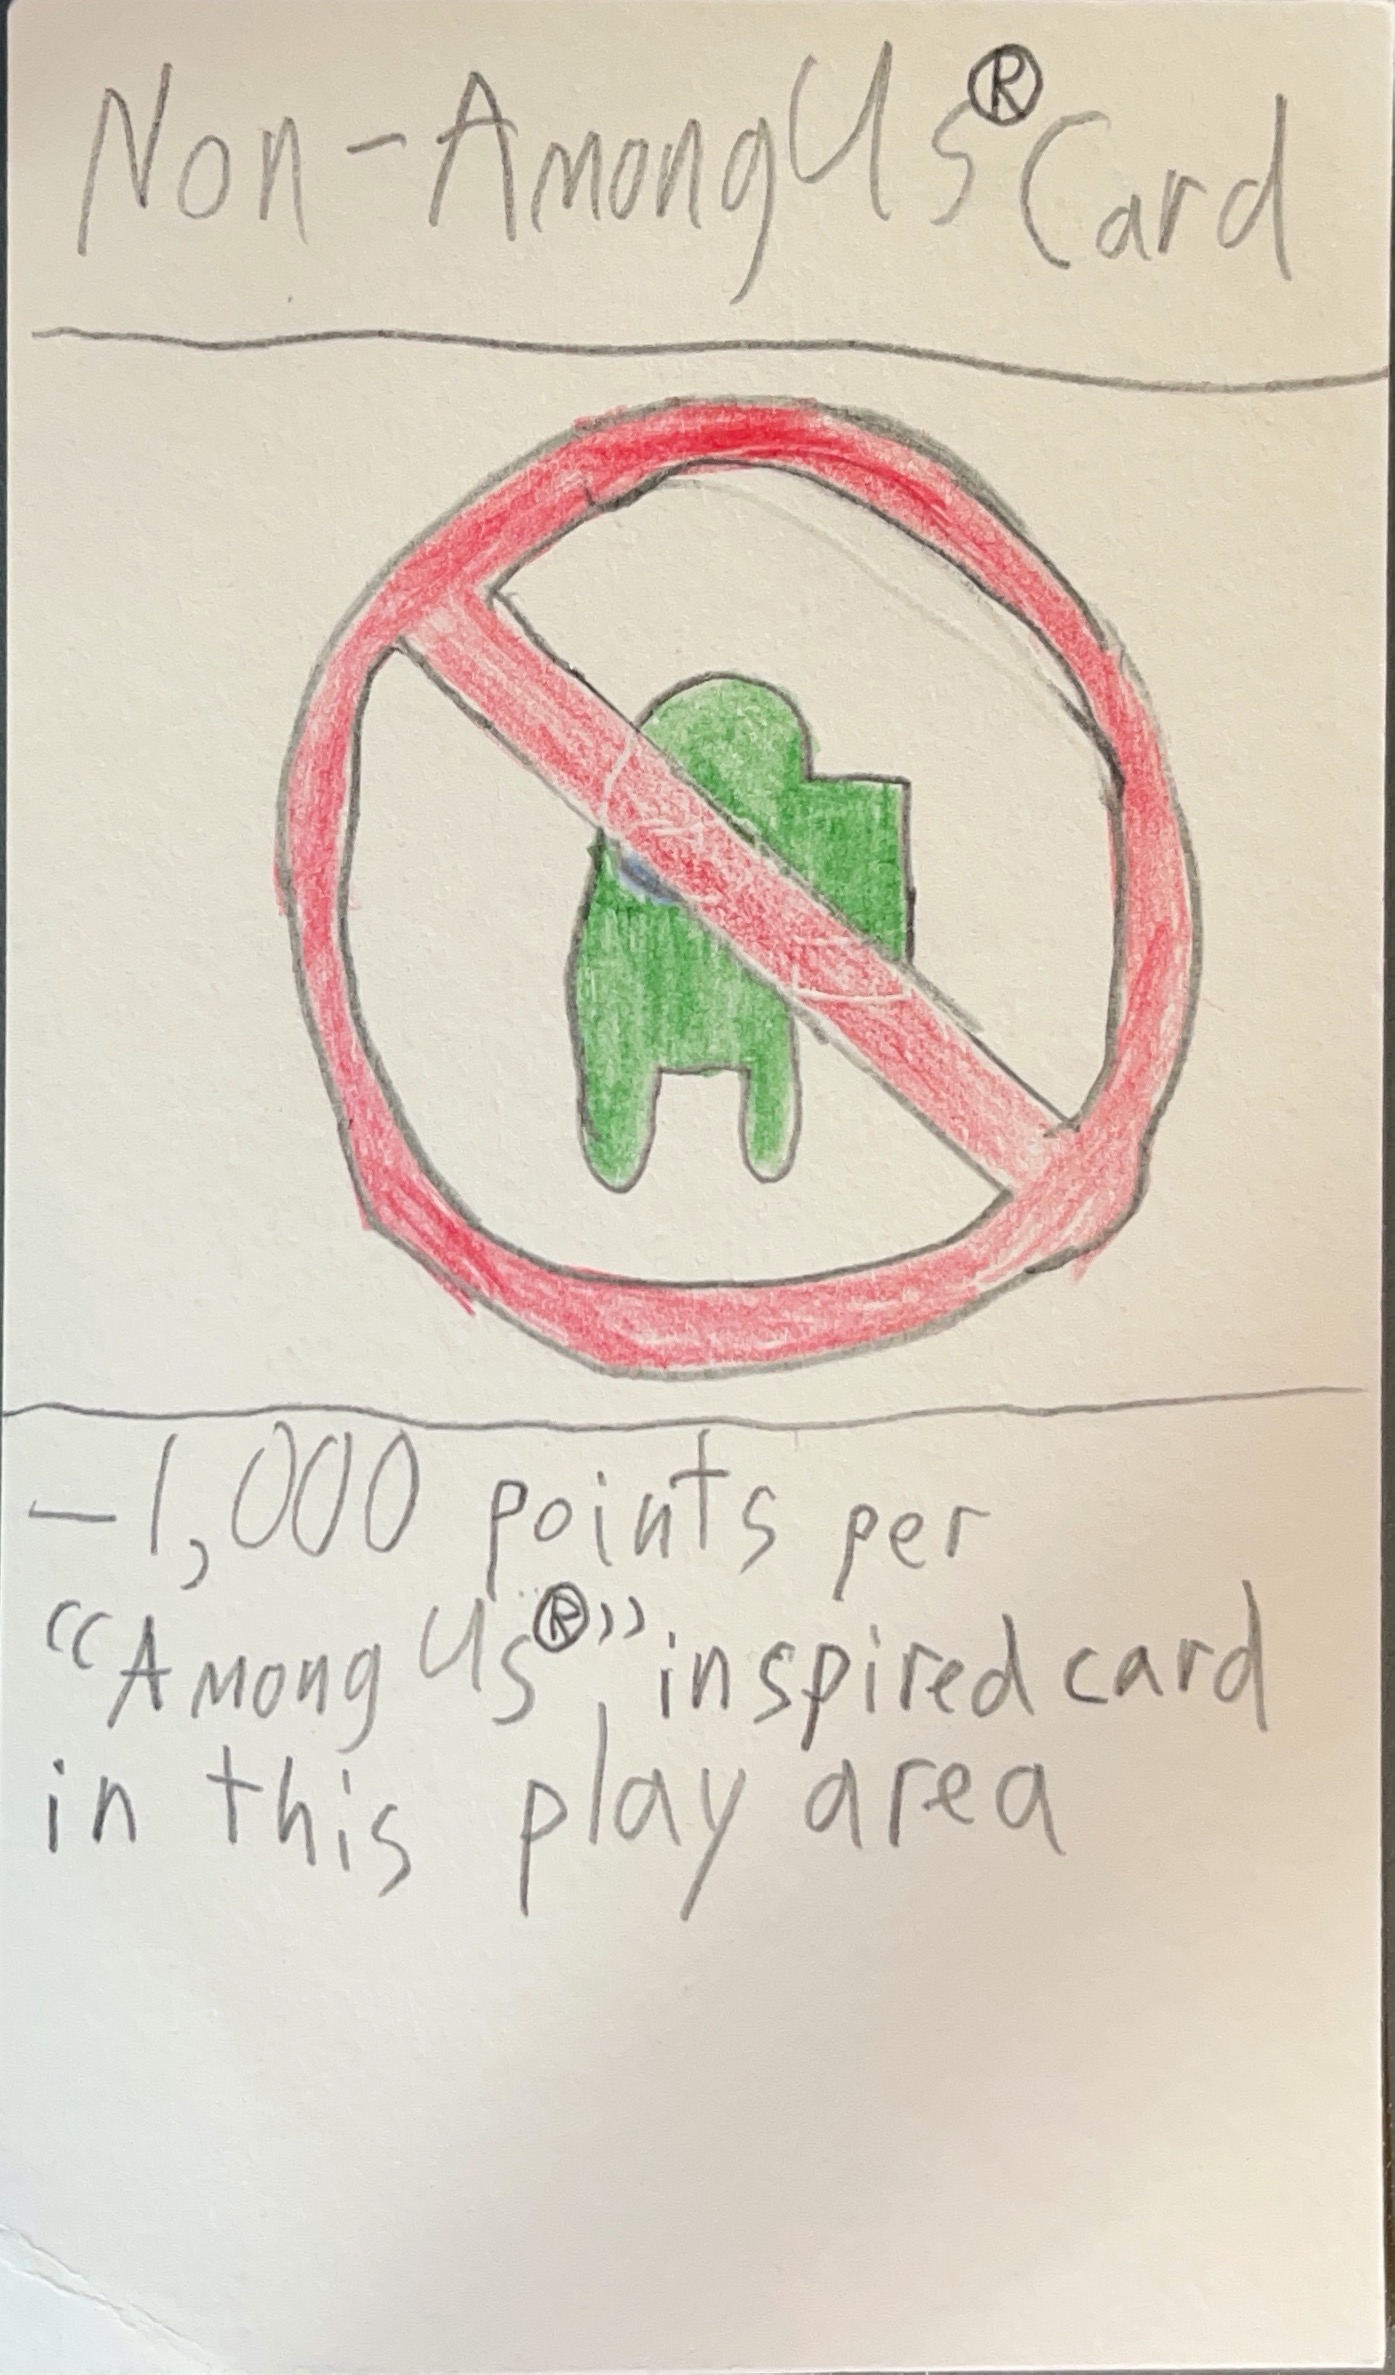 Non-Among Us® Card
-1,000 points per
“Among Us®” inspired card
in this play area